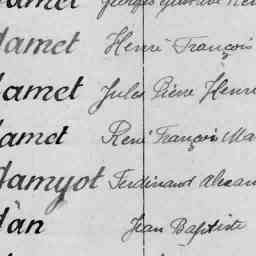 amet Georges Gustave
damet Henri François
damet Jules Pierre Henri
damet René François Ma
damyot Ferdinand Alexan
dan Jean Baptiste